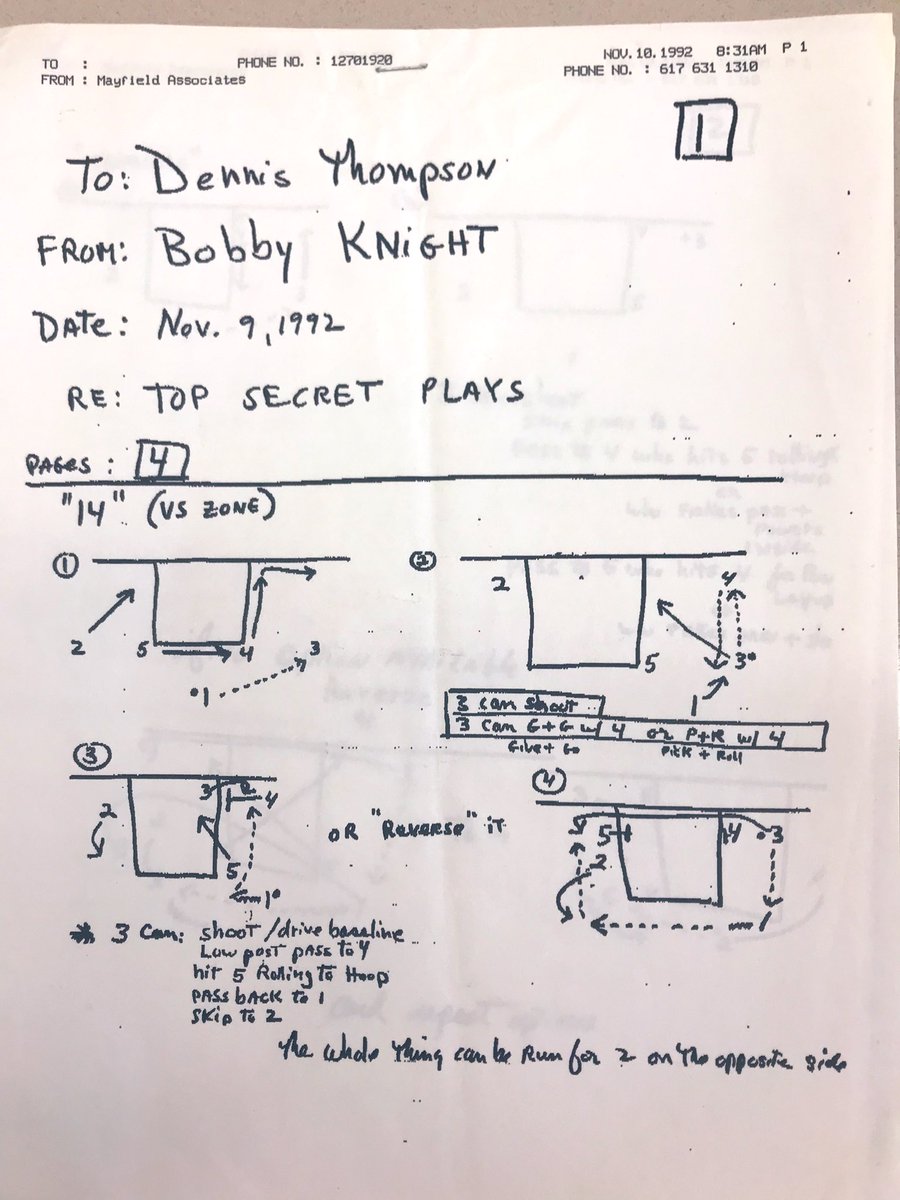 TO : PHONE NO. : 12701920 NOV.10.1992 8:31AM P 1
FROM : Mayfield Associates PHONE NO. : 617 631 1310
1
To: Dennis Thompson
FROM: Bobby KNIGHT
DATE: Nov. 9, 1992
RE: TOP SECRET PLAYS
PAGES: 4
"14" (VS ZONE)
1
2 5 4 3
1
2
2 4
5 3*
1
3 can shoot
3 can G+G w/ 4 or P+R w/ 4
Give + Go Pick + Roll
3
2 3 4
5
1
OR "Reverse" it
4
5 4 3
2
1
* 3 Can: shoot/drive bassline
Low post pass to 4
hit 5 Rolling To Hoop
PASS bACK to 1
SKip to 2
The whole thing can be Run for 2 on the opposite side